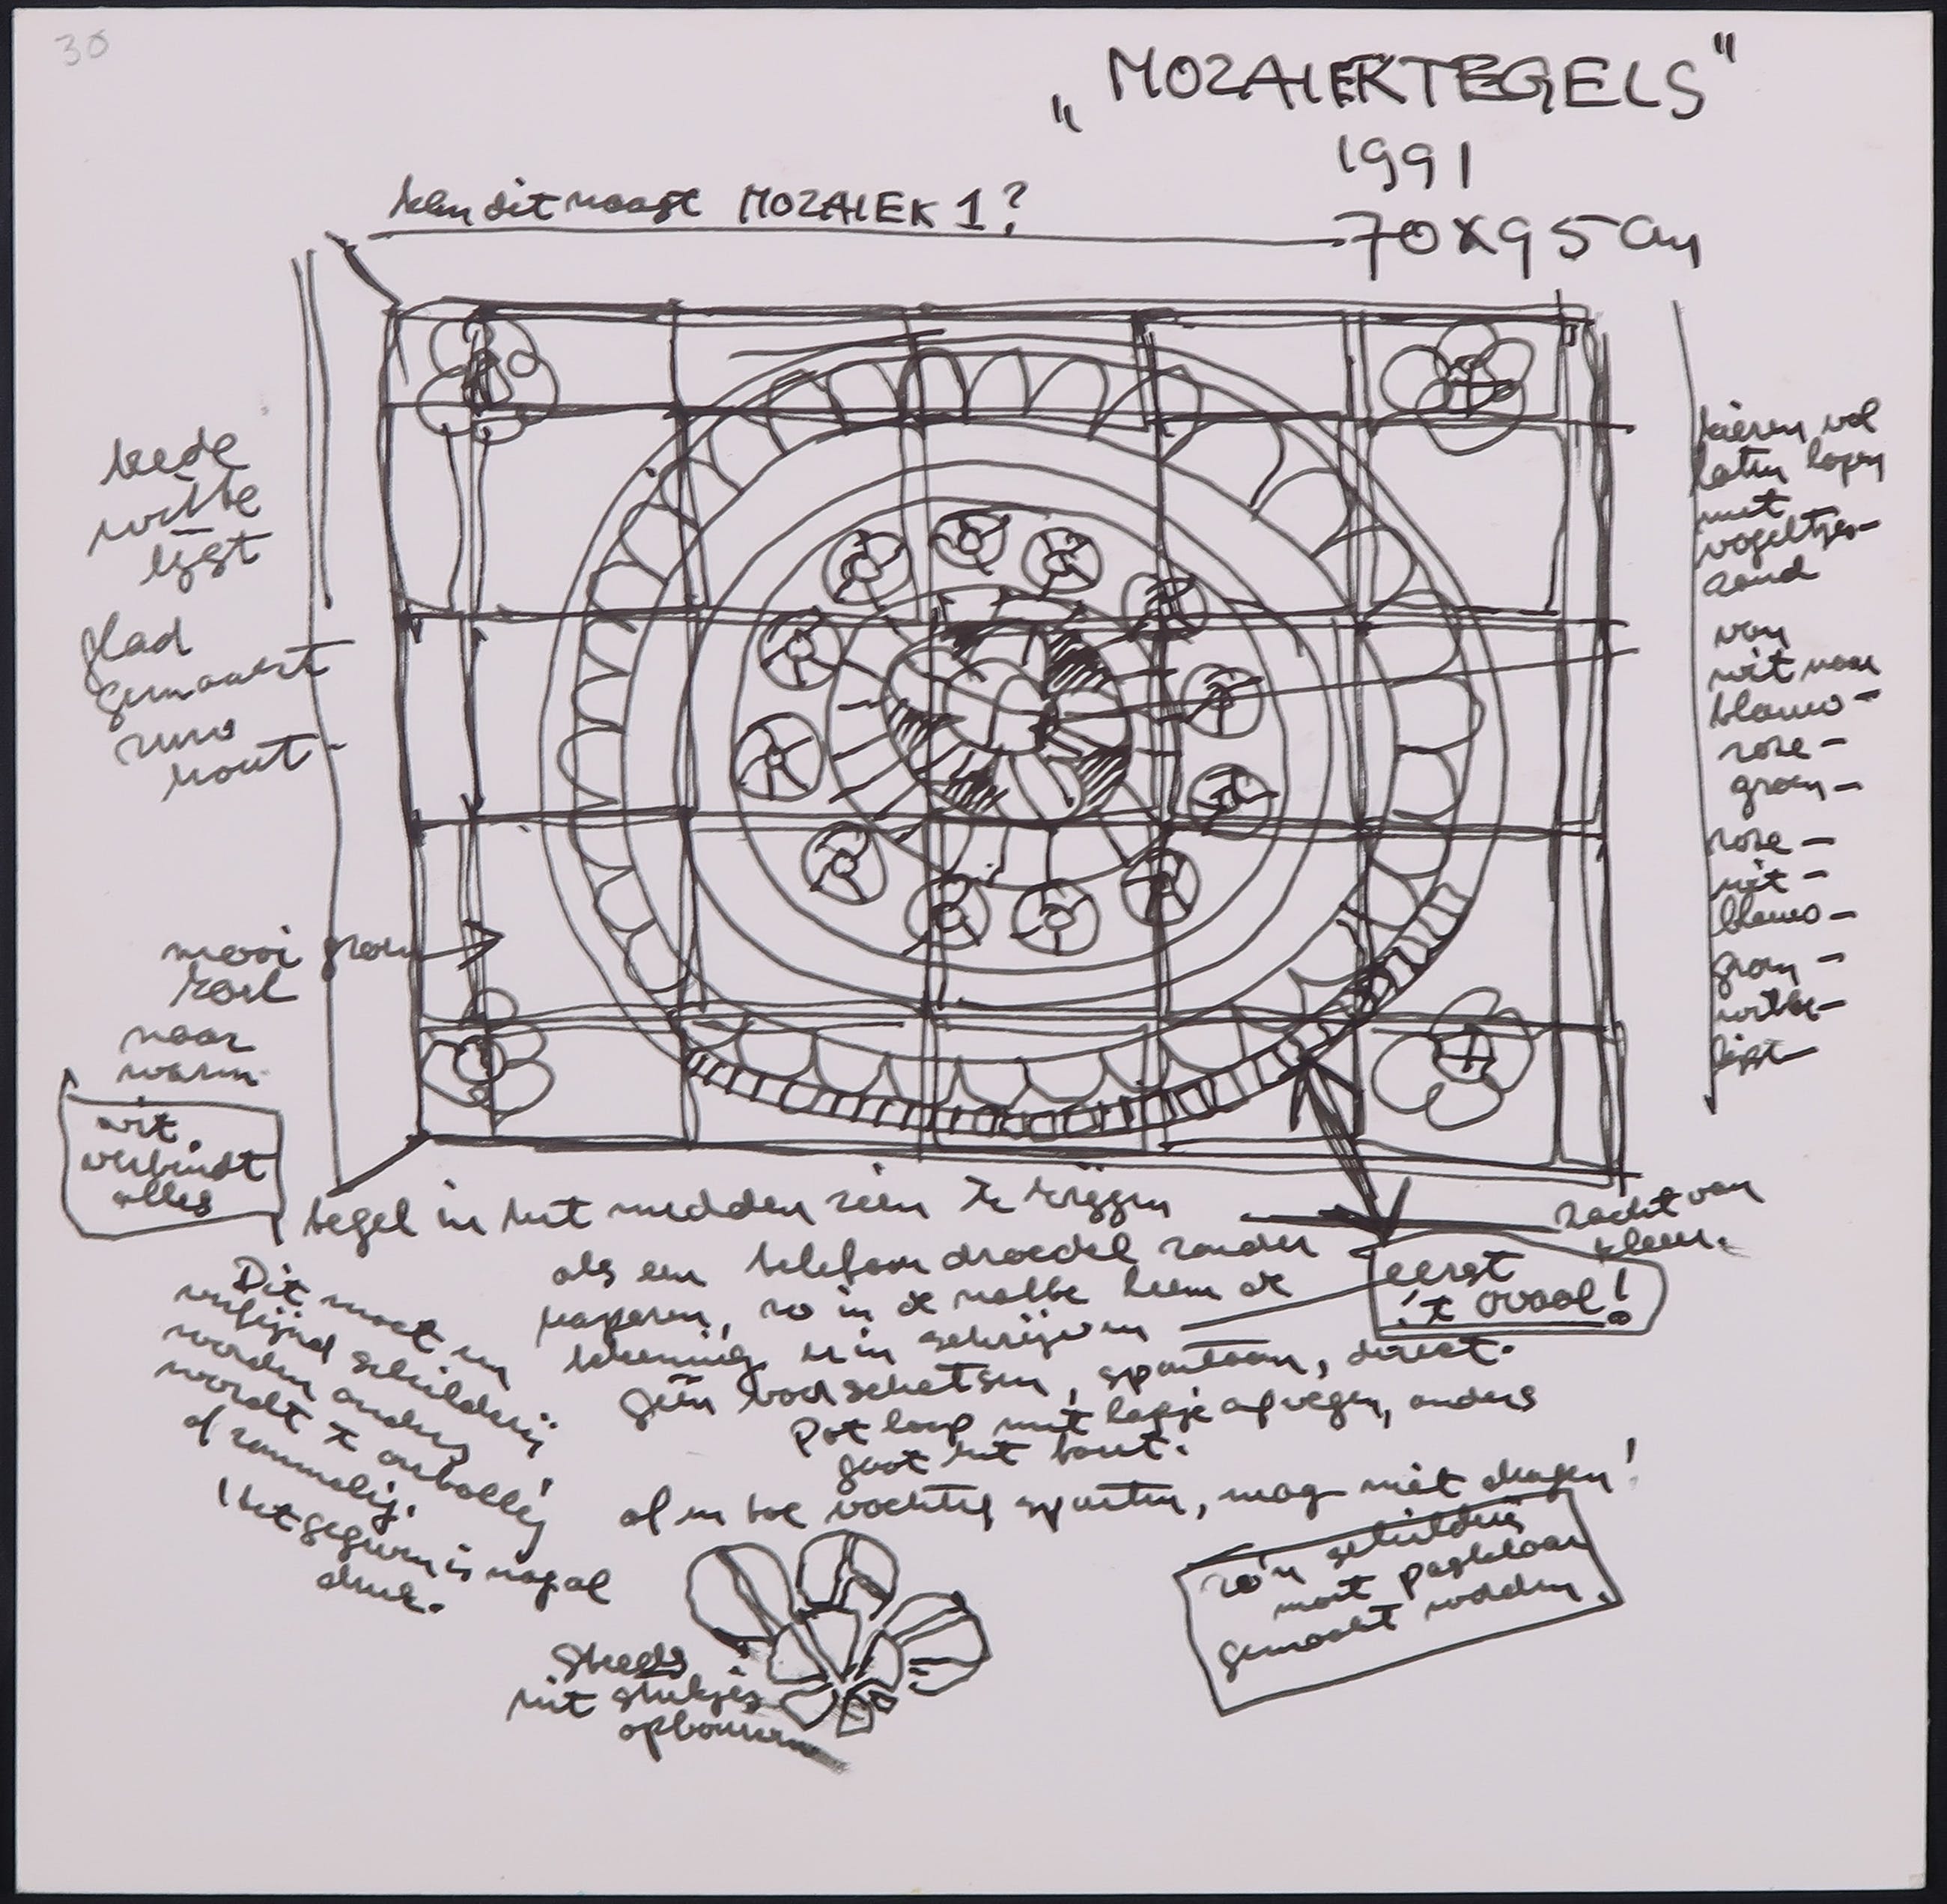 30
„MOZAIEKTEGELS"
1991
70x95 cm
kan dit naast MOZAIEK 1?
witte
lijst
glad
gemaakt
ruw
hout
mooi groen
naar
warm
wit
verbindt
alles
kieren vol
laten lopen
met
vogeltjes-
zand
van
wit naar
blauw-
rose-
groen-
rose-
wit-
blauw-
groen-
witte-
lijst
tegel in het midden zien te krijgen
als een telefoon droedel zonder
, zo in de natte de
tekening er in schrijven
géén voorschetsen, spontaan, direct.
Pot lood met lapje afvegen, anders
gaat het fout.
af en toe vochtig spuiten, mag niet drogen!
zacht van
kleur.
eerst
't ovaal!
Dit moet een
verfijnd schilderij
worden anders
wordt 't onbollig
of rommelig.
! het gegeven is nogal
druk.
Steeds
uit stukjes
opbouwen
zo'n schilderij
moet pasklaar
gemaakt worden